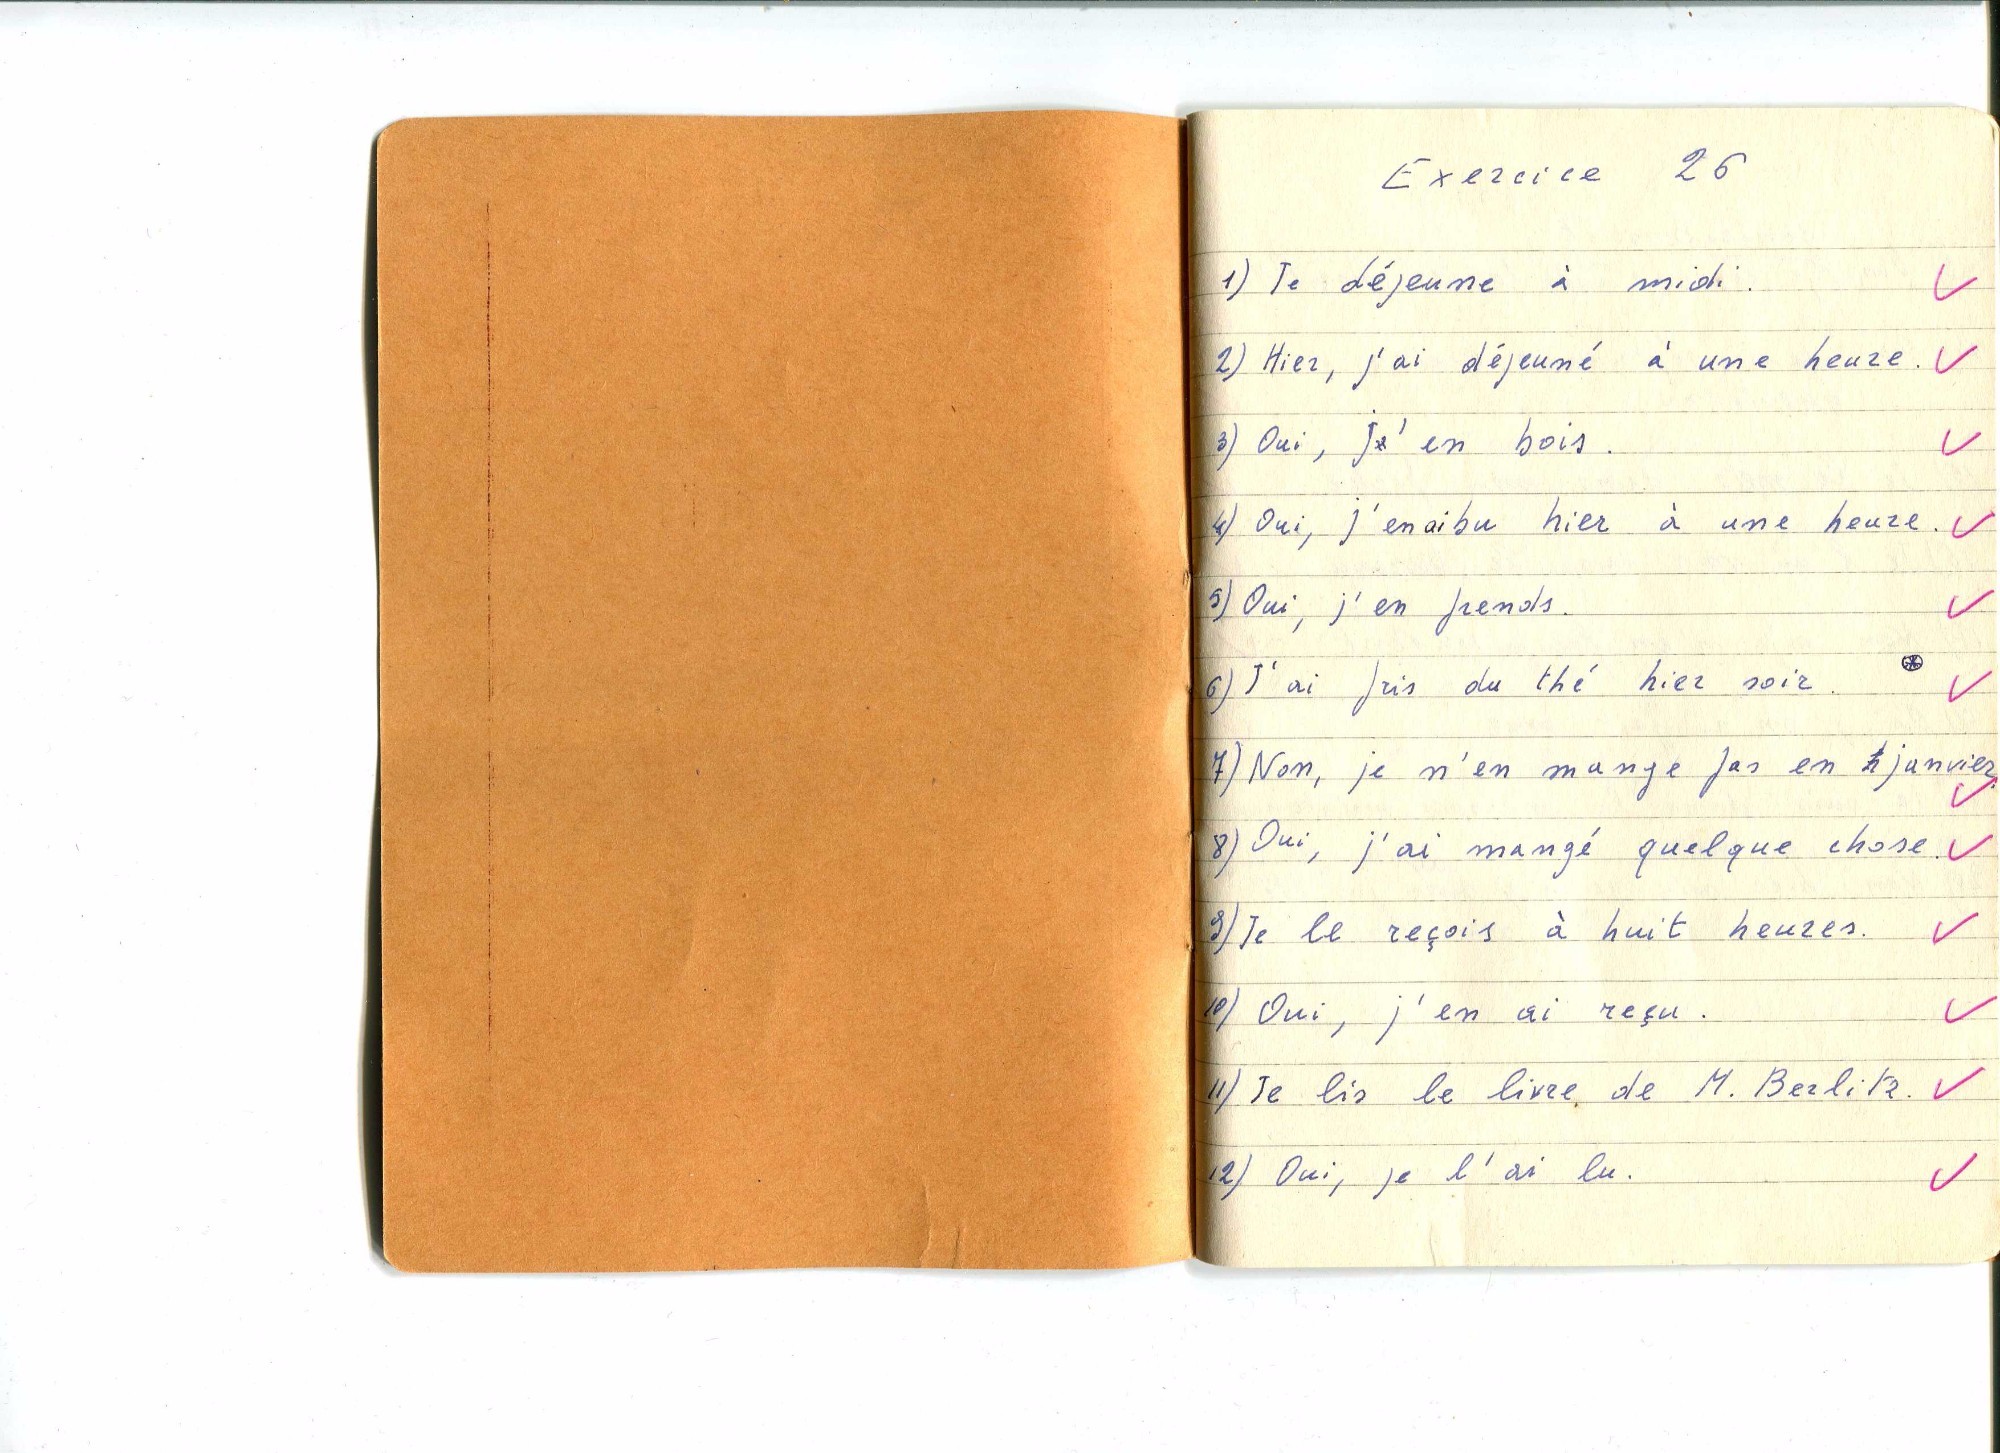 Exercice 26
1) Je déjeune à midi.
2) Hier, j'ai déjeuné à une heure.
3) Oui, j'en bois.
4) Oui, j'en ai bu hier à une heure.
5) Oui, j'en prends.
6) J'ai pris du thé hier soir.
7) Non, je n'en mange pas en janvier.
8) Oui, j'ai mangé quelque chose.
9) Je le reçois à huit heures.
10) Oui, j'en ai reçu.
11) Je lis le livre de M. Berlitz.
12) Oui, je l'ai lu.